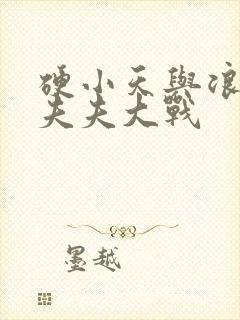 硬小天與浪
夫夫大戰
墨越